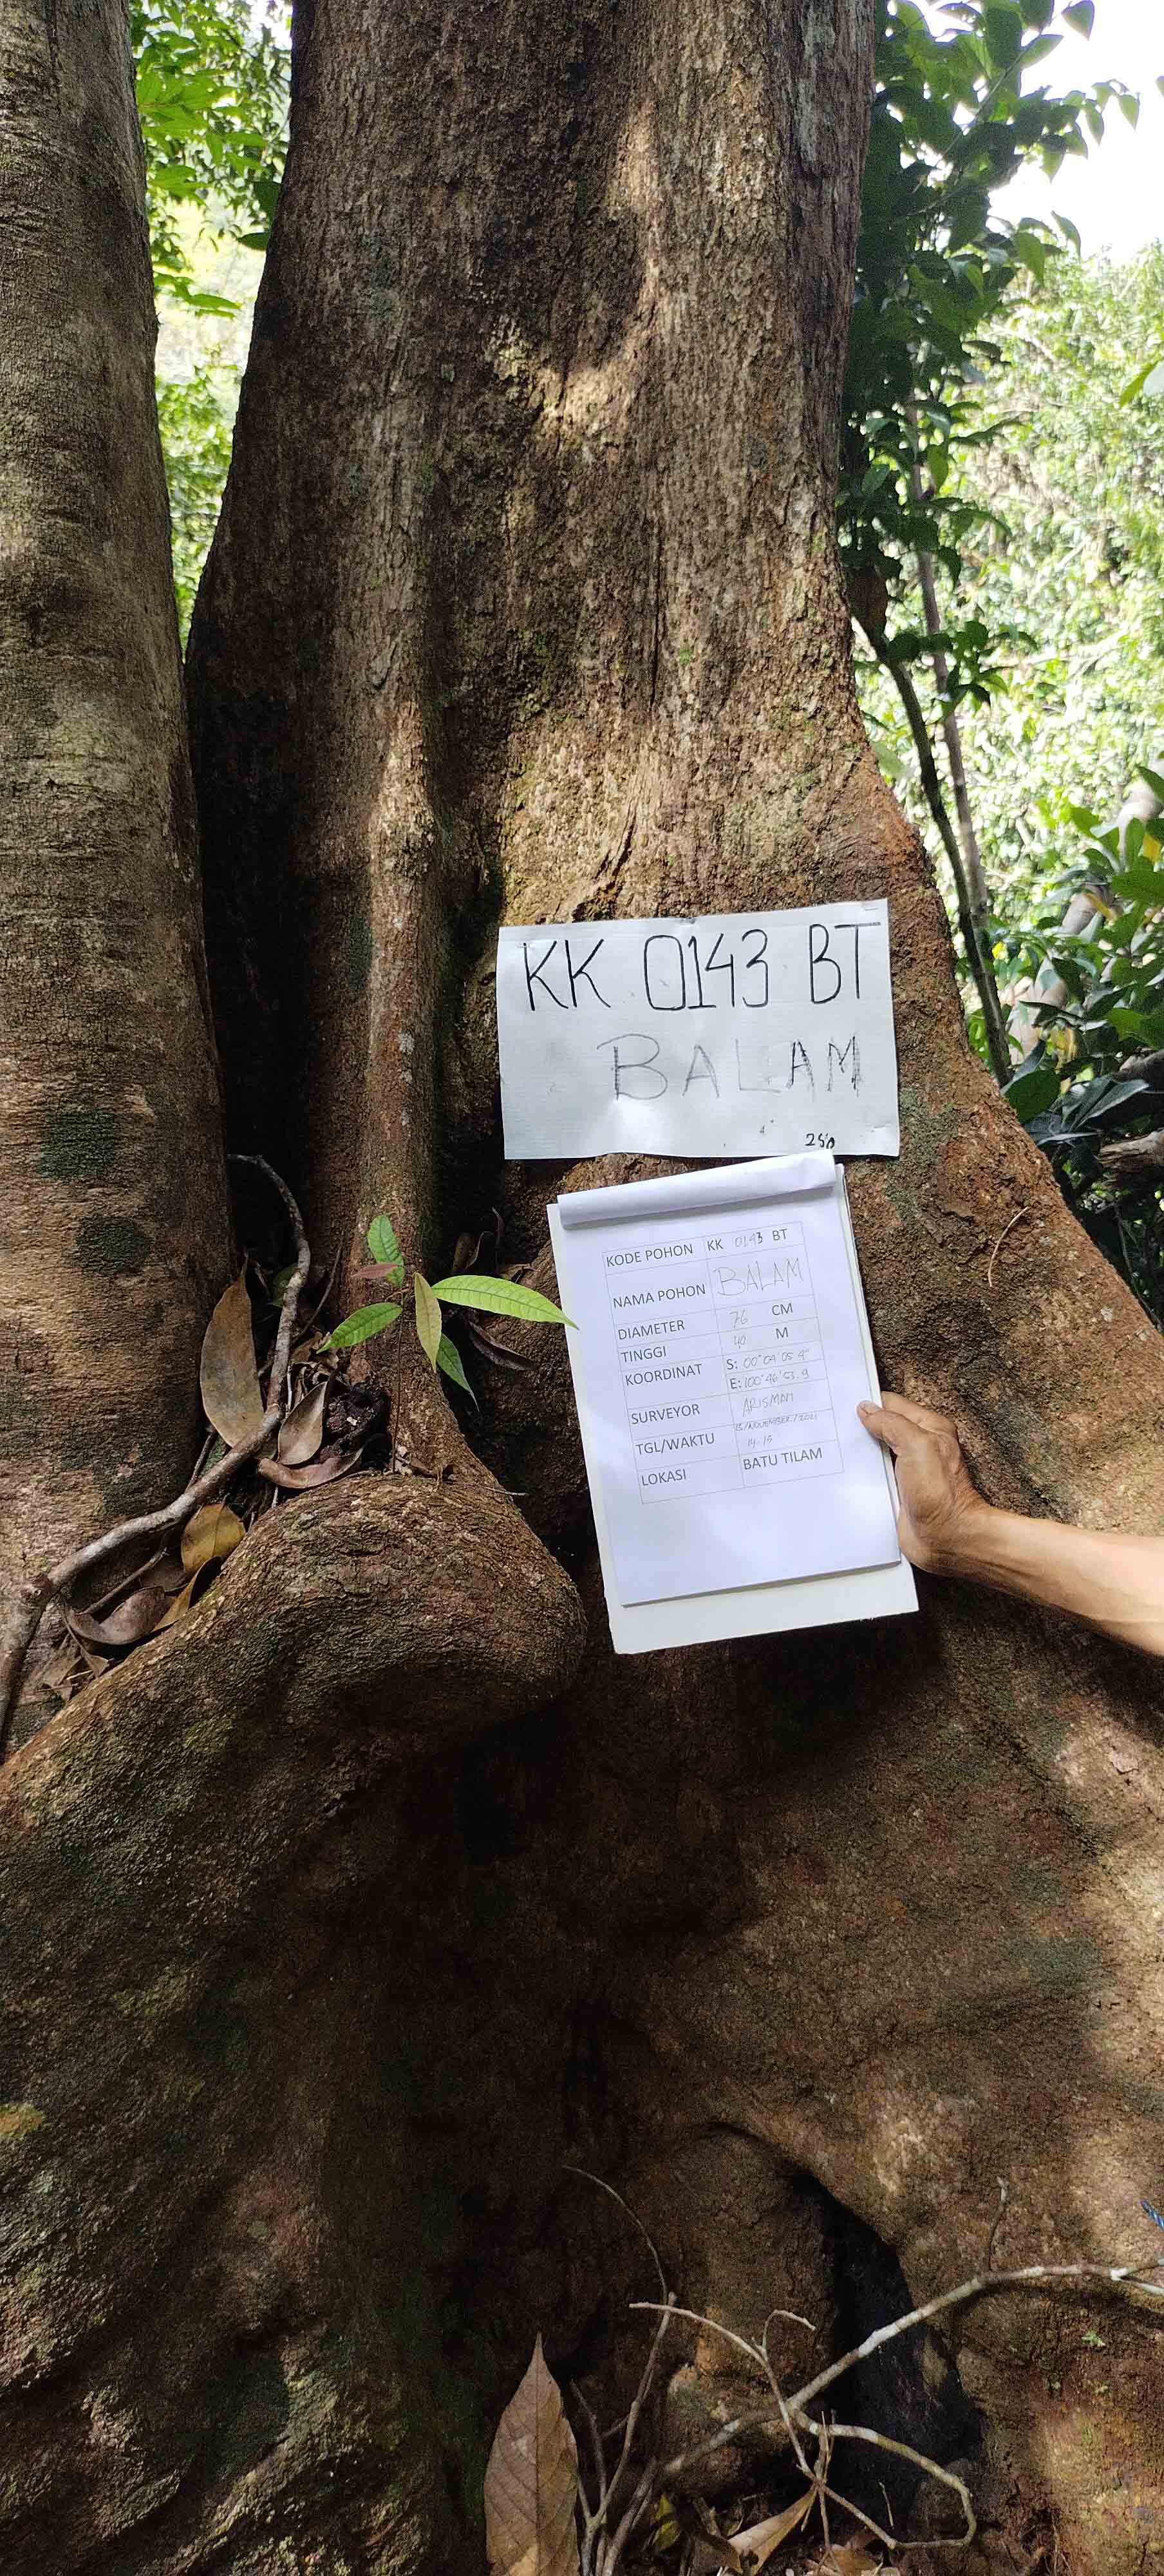 KK 0143 BT
BALAM
250
KODE POHON KK 0143 BT
NAMA POHON BALAM
DIAMETER 76 CM
TINGGI 40 M
KOORDINAT S: 00°04'05.4"
E: 100°46'53.9
SURVEYOR ARISMAN
TGL/WAKTU /NOVEMBER/2021
14.16
LOKASI BATU TILAM